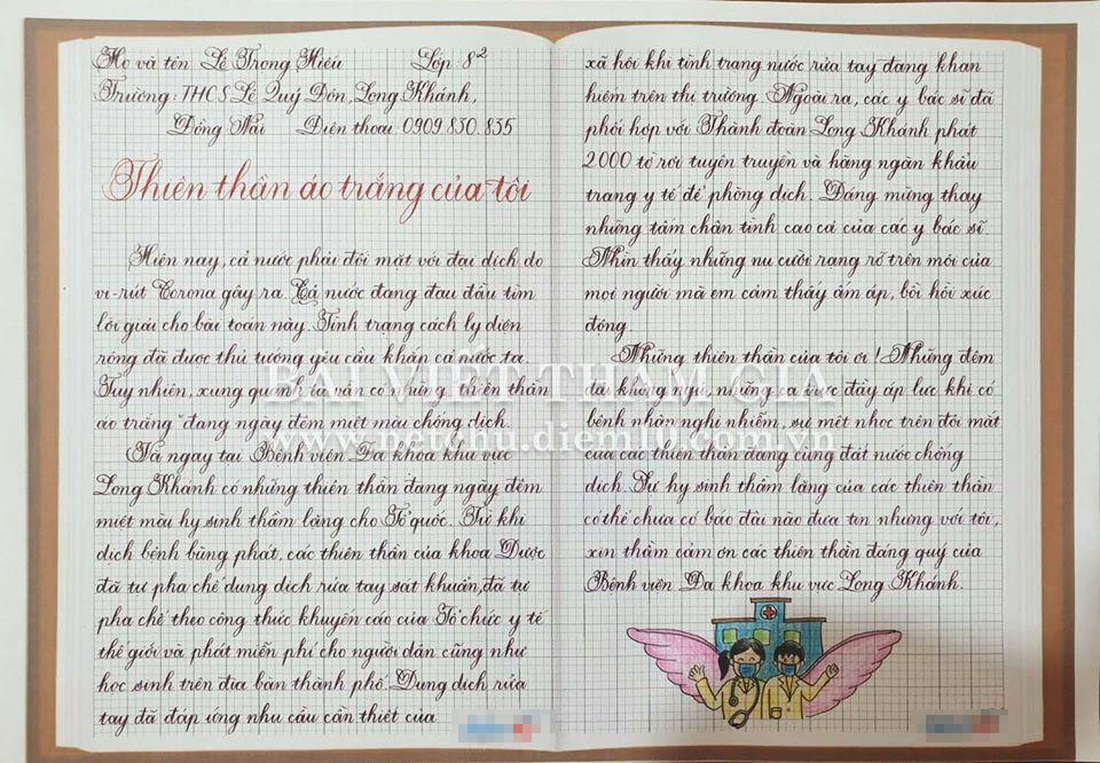 Họ và tên Lê Trọng Hiếu Lớp: 8²
Trường: THCS Lê Quý Đôn, Long Khánh,
Đồng Nai Điện thoại 0909.830.835
Thiên thần áo trắng của tôi
Hiện nay, cả nước phải đối mặt với đại dịch do
vi-rút Corona gây ra. Cả nước đang đau đầu tìm
lời giải cho bài toán này. Tình trạng cách ly diện
rộng đã được thủ tướng yêu cầu khắp cả nước ta.
Tuy nhiên, xung quanh ta vẫn có những "thiên thần
áo trắng" đang ngày đêm miệt mài chống dịch.
Và ngay tại Bệnh viện Đa khoa khu vực
Long Khánh có những thiên thần đang ngày đêm
miệt mài hy sinh thầm lặng cho Tổ quốc. Từ khi
dịch bệnh bùng phát, các thiên thần của khoa Dược
đã tự pha chế dung dịch rửa tay sát khuẩn, đã tự
pha chế theo công thức khuyến cáo của Tổ chức y tế
thế giới và phát miễn phí cho người dân cũng như
học sinh trên địa bàn thành phố. Dung dịch rửa
tay đã đáp ứng nhu cầu cần thiết của
xã hội khi tình trạng nước rửa tay đang khan
hiếm trên thị trường. Ngoài ra, các y bác sĩ đã
phối hợp với Thành đoàn Long Khánh phát
2000 tờ rơi tuyên truyền và hàng ngàn khẩu
trang y tế để phòng dịch. Đáng mừng thay
những tấm chân tình cao cả của các y bác sĩ.
Nhìn thấy những nụ cười rạng rỡ trên môi của
mọi người mà em cảm thấy ấm áp, bồi hồi xúc
động.
Những thiên thần của tôi ơi! Những đêm
dài không ngủ, những ca trực đầy áp lực khi có
bệnh nhân nghi nhiễm, sự mệt nhọc trên đôi mắt
của các thiên thần đang cùng đất nước chống
dịch. Sự hy sinh thầm lặng của các thiên thần
có thể chưa có báo đài nào đưa tin nhưng với tôi,
xin thầm cảm ơn các thiên thần đáng quý của
Bệnh viện Đa khoa khu vực Long Khánh.
BÀI VIẾT THAM GIA
www.netchu.diem10.com.vn